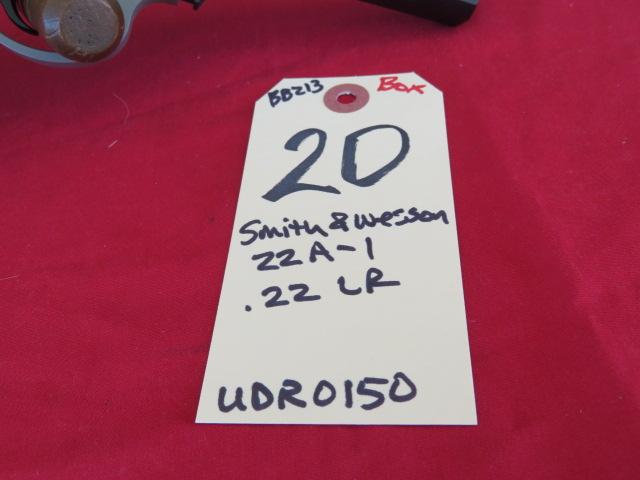 BBZ13
Box
20
Smith & Wesson
22A-1
.22 LR
UDR0150